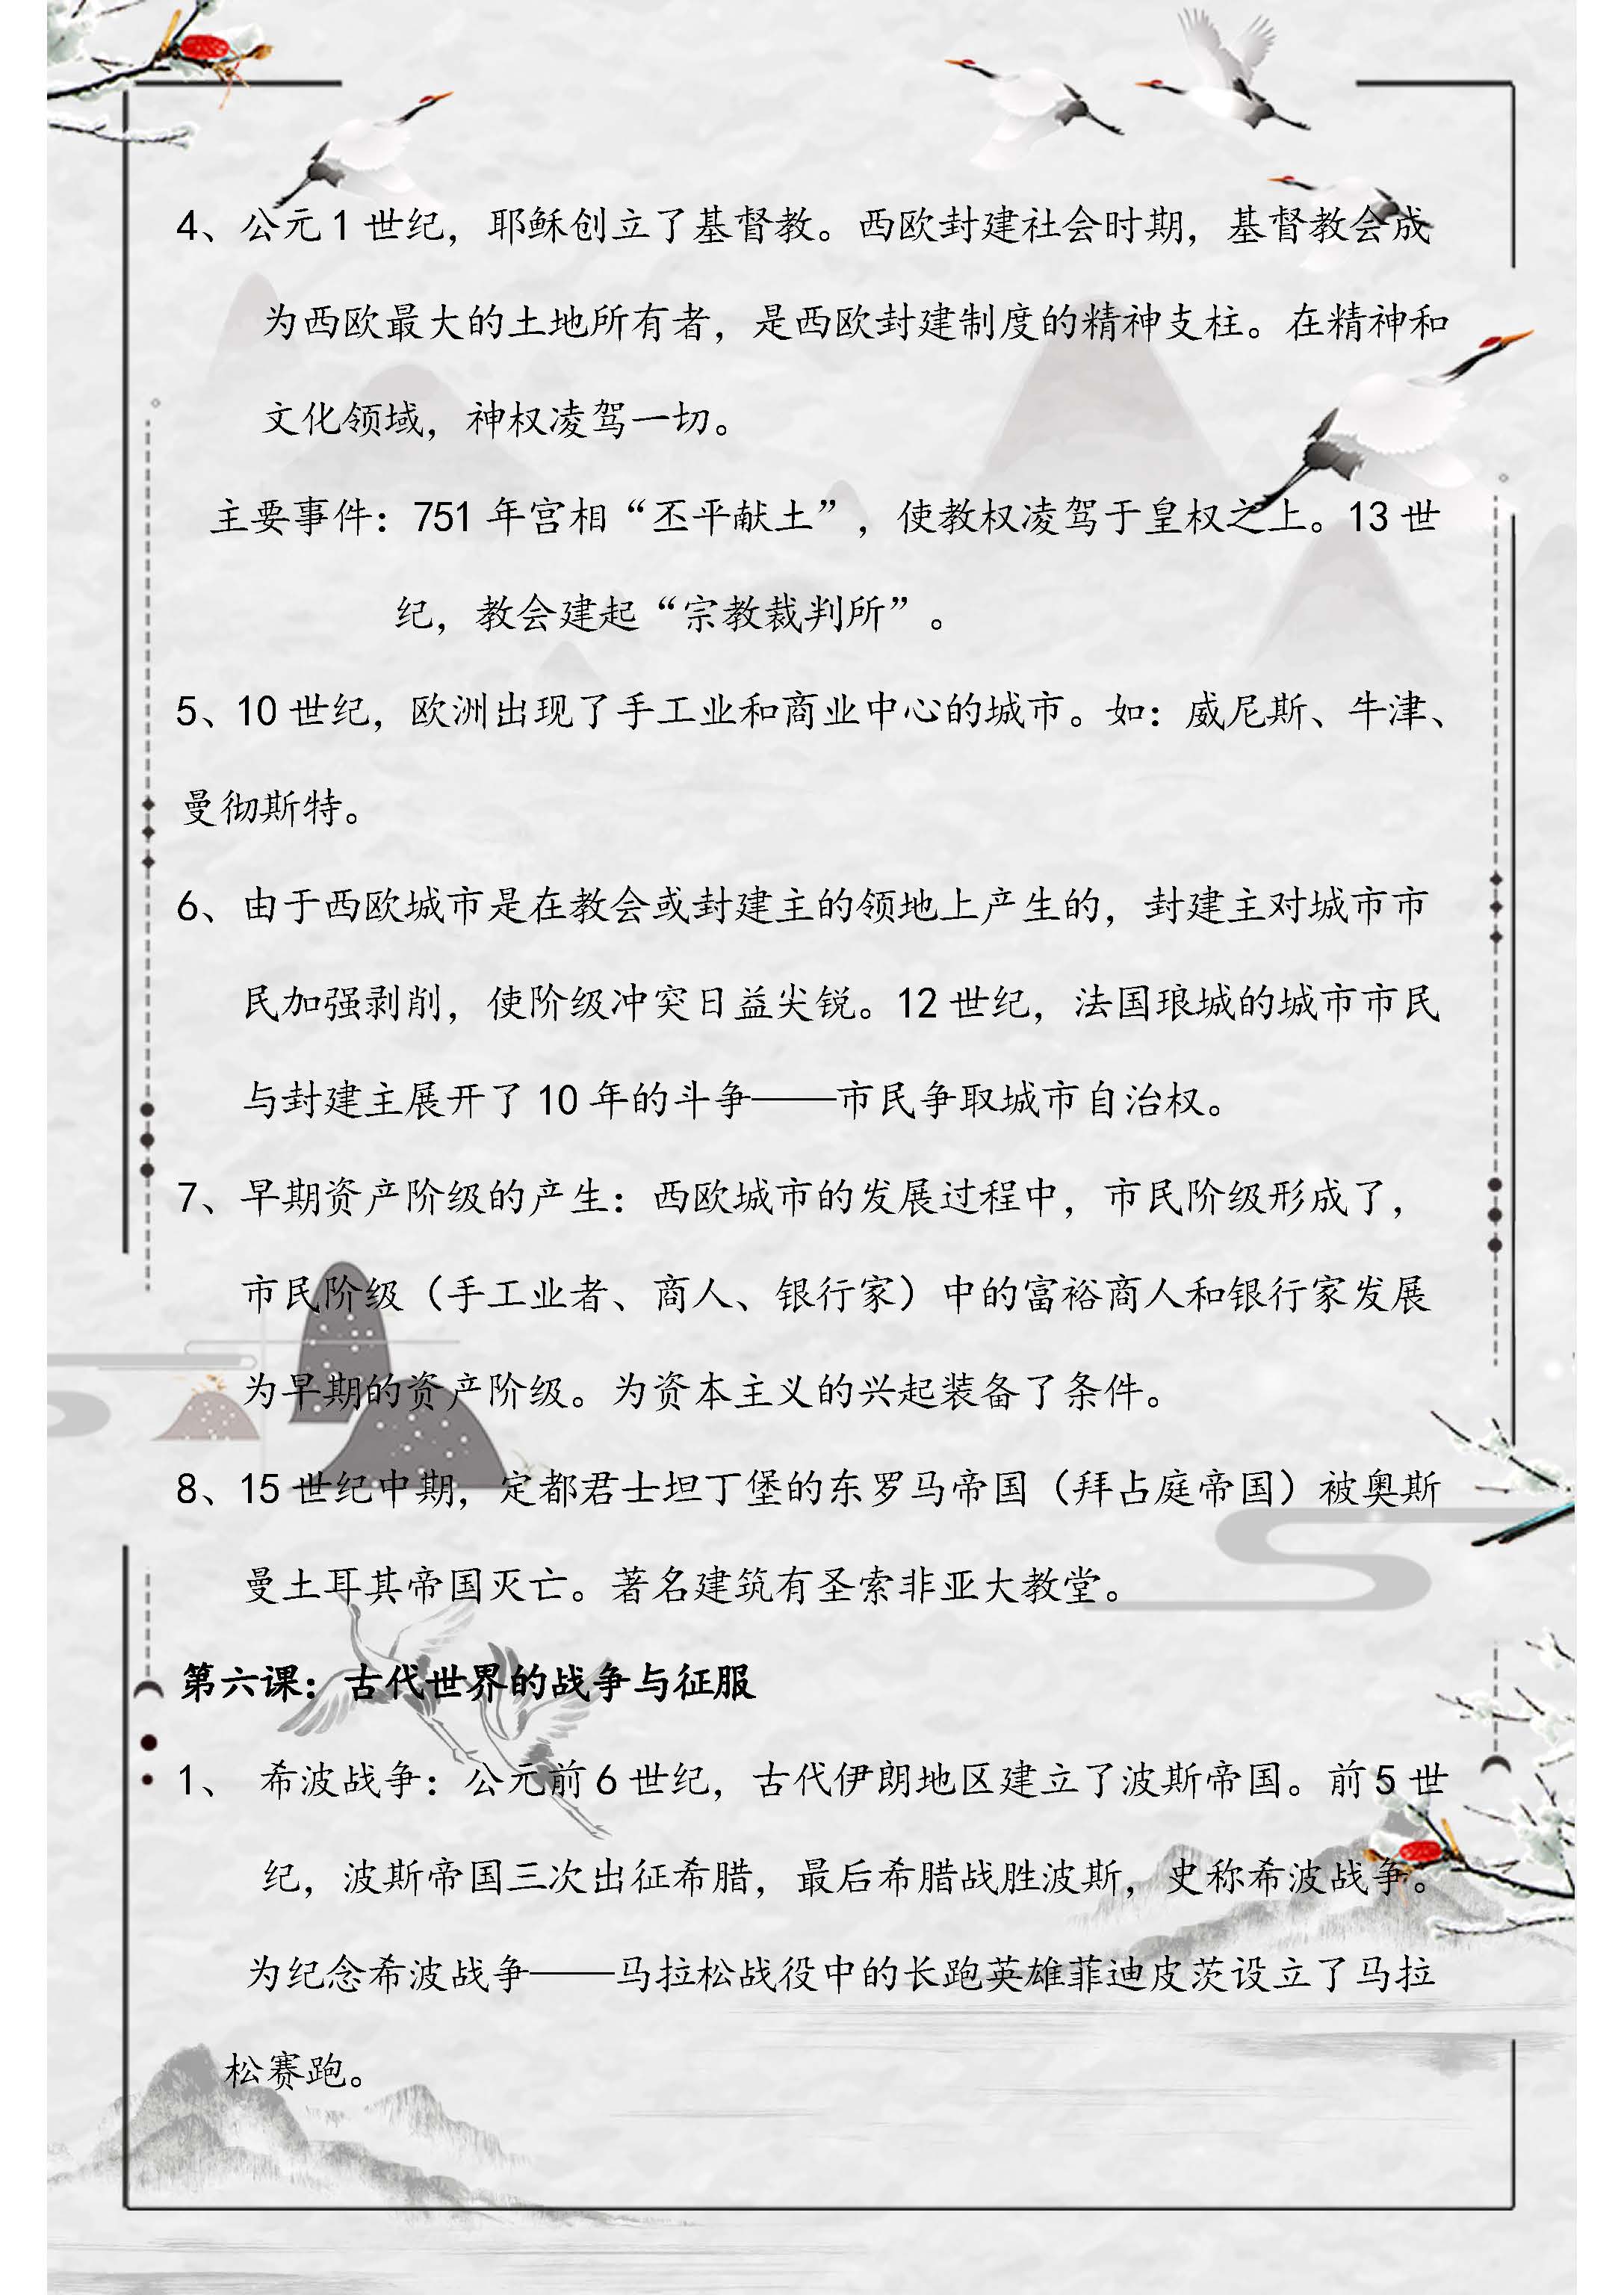 4、公元1 世纪，耶稣创立了基督教。西欧封建社会时期，基督教会成
为西欧最大的土地所有者，是西欧封建制度的精神支柱。在精神和
文化领域，神权凌驾一切。
主要事件：751 年宫相“丕平献土”，使教权凌驾于皇权之上。13 世
纪，教会建起“宗教裁判所”。
5、10 世纪，欧洲出现了手工业和商业中心的城市。如：威尼斯、牛津、
曼彻斯特。
6、由于西欧城市是在教会或封建主的领地上产生的，封建主对城市市
民加强剥削，使阶级冲突日益尖锐。12 世纪，法国琅城的城市市民
与封建主展开了 10 年的斗争——市民争取城市自治权。
7、早期资产阶级的产生：西欧城市的发展过程中，市民阶级形成了，
市民阶级（手工业者、商人、银行家）中的富裕商人和银行家发展
为早期的资产阶级。为资本主义的兴起装备了条件。
8、15 世纪中期，定都君士坦丁堡的东罗马帝国（拜占庭帝国）被奥斯
曼土耳其帝国灭亡。著名建筑有圣索非亚大教堂。
第六课：古代世界的战争与征服
1、 希波战争：公元前 6 世纪，古代伊朗地区建立了波斯帝国。前 5 世
纪，波斯帝国三次出征希腊，最后希腊战胜波斯，史称希波战争。
为纪念希波战争——马拉松战役中的长跑英雄菲迪皮茨设立了马拉
松赛跑。